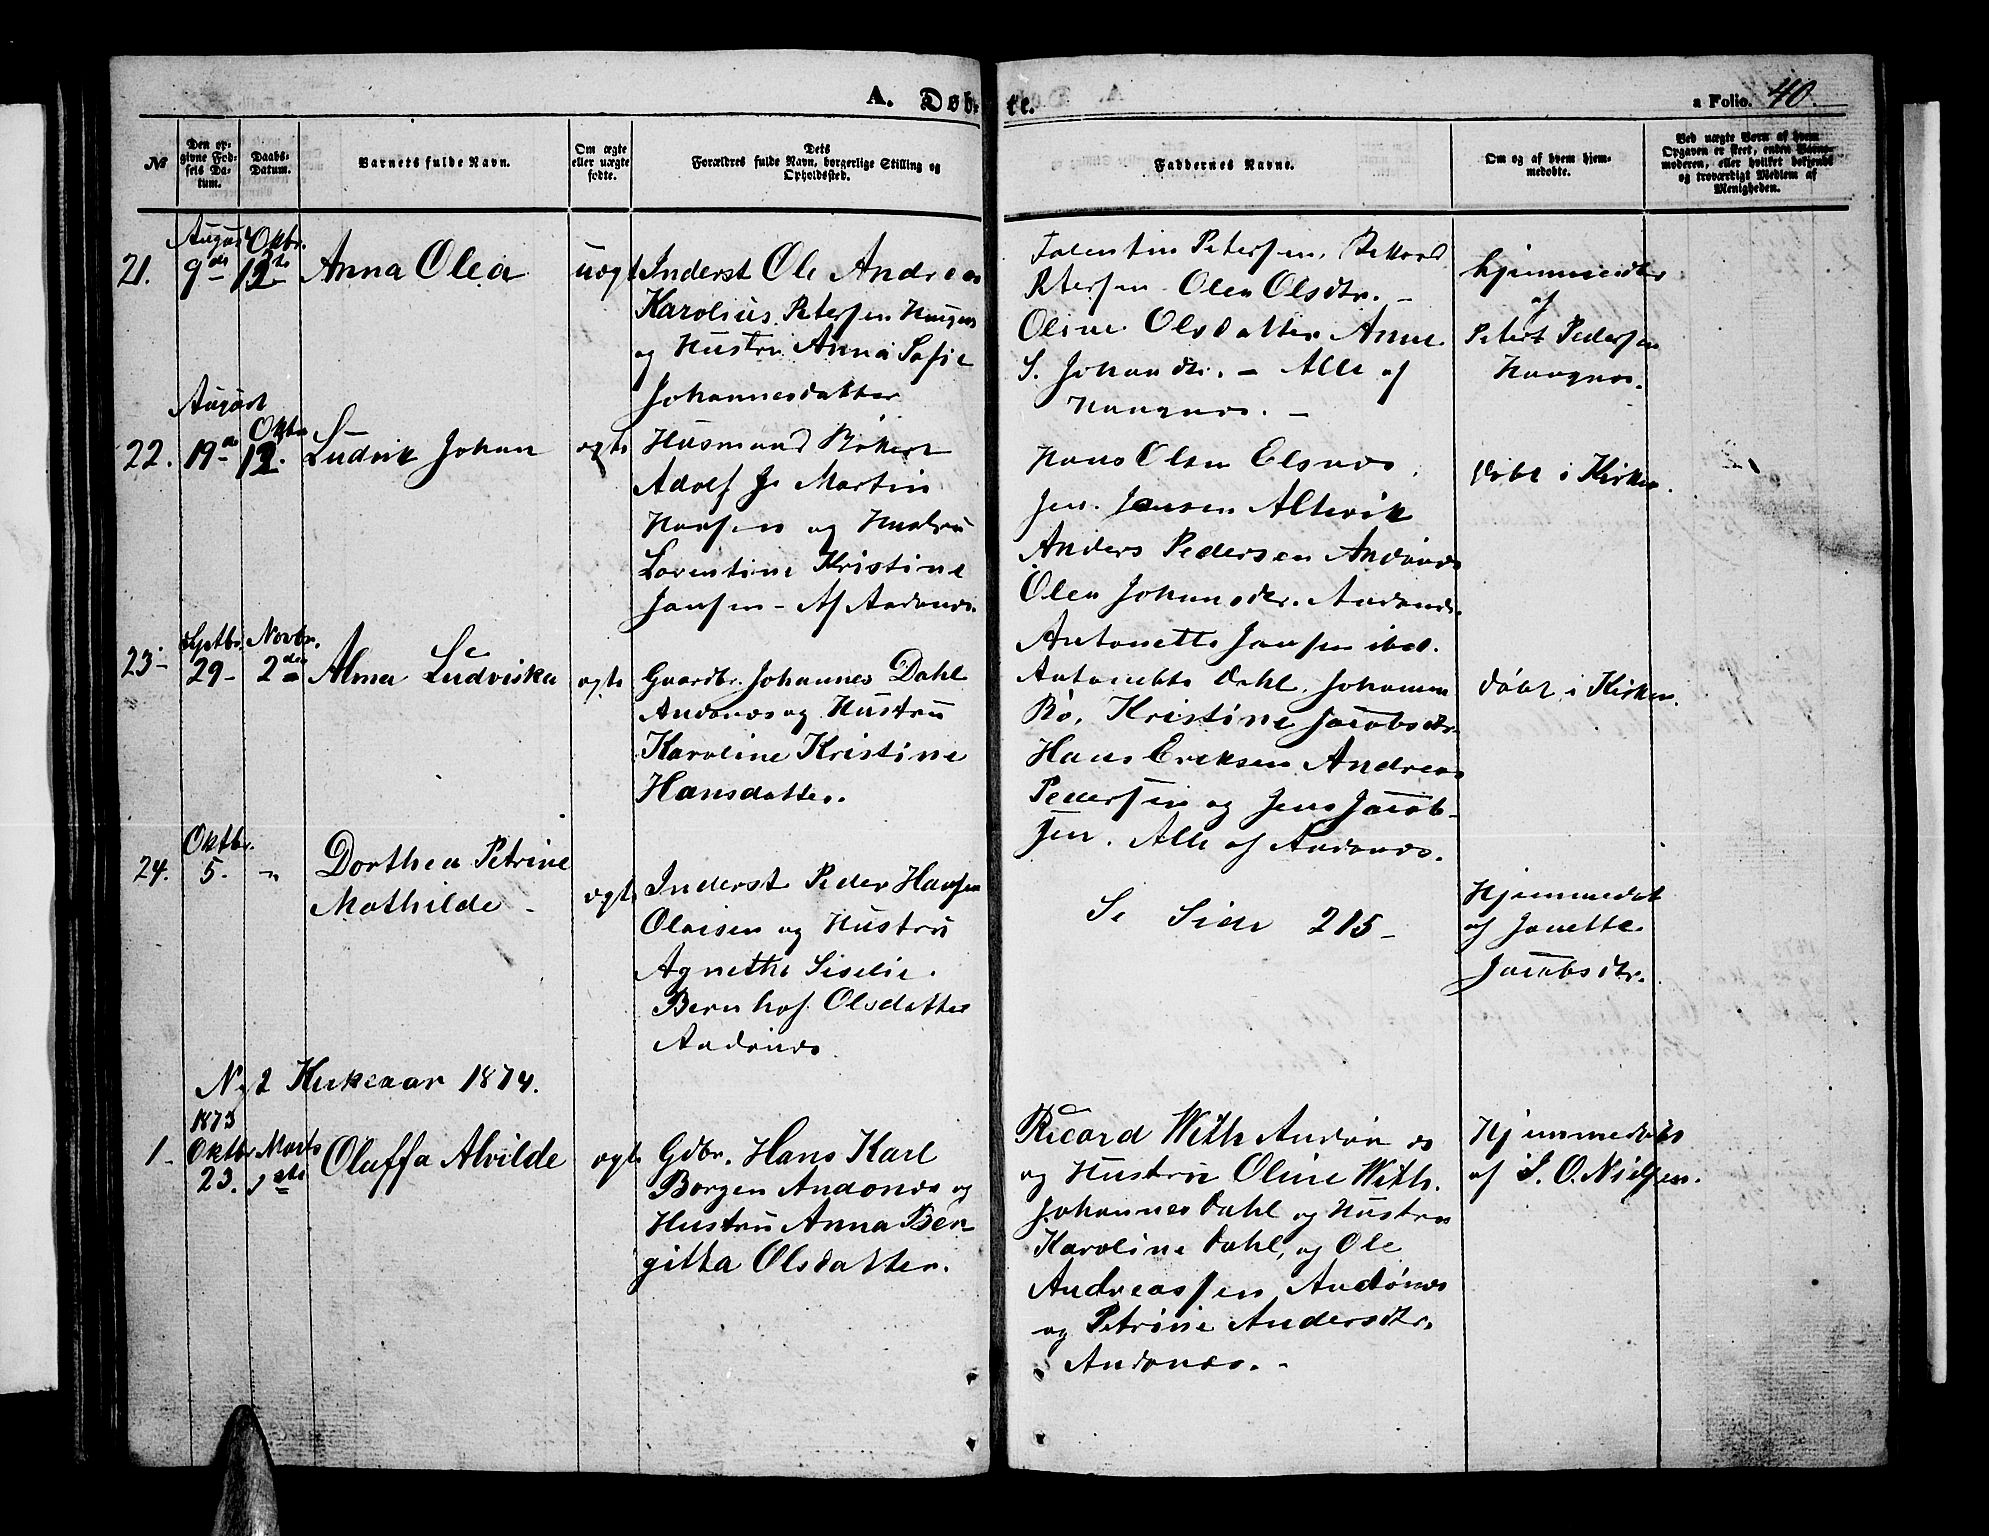 A. Døb-
te.
a Folio. 40.
№
Den op-
givne Fød-
sels Da-
tum.
Daabs-
Datum.
Barnets fulde Navn.
Om ægte
eller uægte
fødte.
Dets
Forældres fulde Navn, borgerlige Stilling og
Opholdssted.
Faddernes Navne.
Om og af hvem hjem-
medøbte.
Ved uægte Børn af hvem
Opgaven er skeet, enten Barne-
moderen, eller hvilket bekjendt
og troværdigt Medlem af
Menigheden.
21.
August
9de
Oktbr.
12te
Anna Olea
uægt
Inderst Ole Andreas
Karolius Petersen
og Hustru Anna Sofie
Johannesdatter
Petersen
Petersen Olea Olsdtr. -
Oline Olsdatter Anne
S. Johansdtr. - Alle af
hjemmedbt
af
Petert Pedersen
22.
August
19de
Oktbr
12.
Ludvik Johan
ægte
Husmand Rikert
Adolf J. Martin
Hansen og Hustru
Lorentine Kristine
Jansen - Af Andønæs.
Hans Olsen Elsnæs
Jen. Jansen Altevik
Anders Pedersen Andønæs
Olea Johansdtr. Andønæs.
Antonette Jansen ibid.
døbt i Kirken.
23-
Septbr.
29-
Novbr.
2den
Alma Ludviska
ægte
Gaardbr. Johannes Dahl
Andønæs og Hustru
Karoline Kristine
Hansdatter.
Antonette Dahl, Johannes
Bø, Kristine Jacobsdtr
Hans Eriksen Andreas
Pedersen og Jens Jacob-
sen. Alle af Andønæs.
døbt i Kirken.
24.
Oktbr.
5.
"
Dorthea Petrine
Mathilde -
ægte
Inderst Peder Hansen
Olaisen og Hustru
Agnethe Siselie
Bernhof. Olsdatter
Andønæs.
Se Side 215-
Hjemmedøbt
af Janette
Jacobsdtr.
Nyt Kirkeaar 1874.
1-
1873
Oktbr
23.
Marts
1ste
Oluffa Alvilde
ægte
Gdbr. Hans Karl
Borgen Andønæs og
Hustru Anna Ber
githa Olsdatter.
Ricard With Andønæs
og Hustru Oline With.
Johannes Dahl og Hustru
Karoline Dahl, og Ole
Andreassen Andønæs
og Petrine Andersdtr.
Andønæs. -
Hjemmedøbt
af S. O. Nielsen.